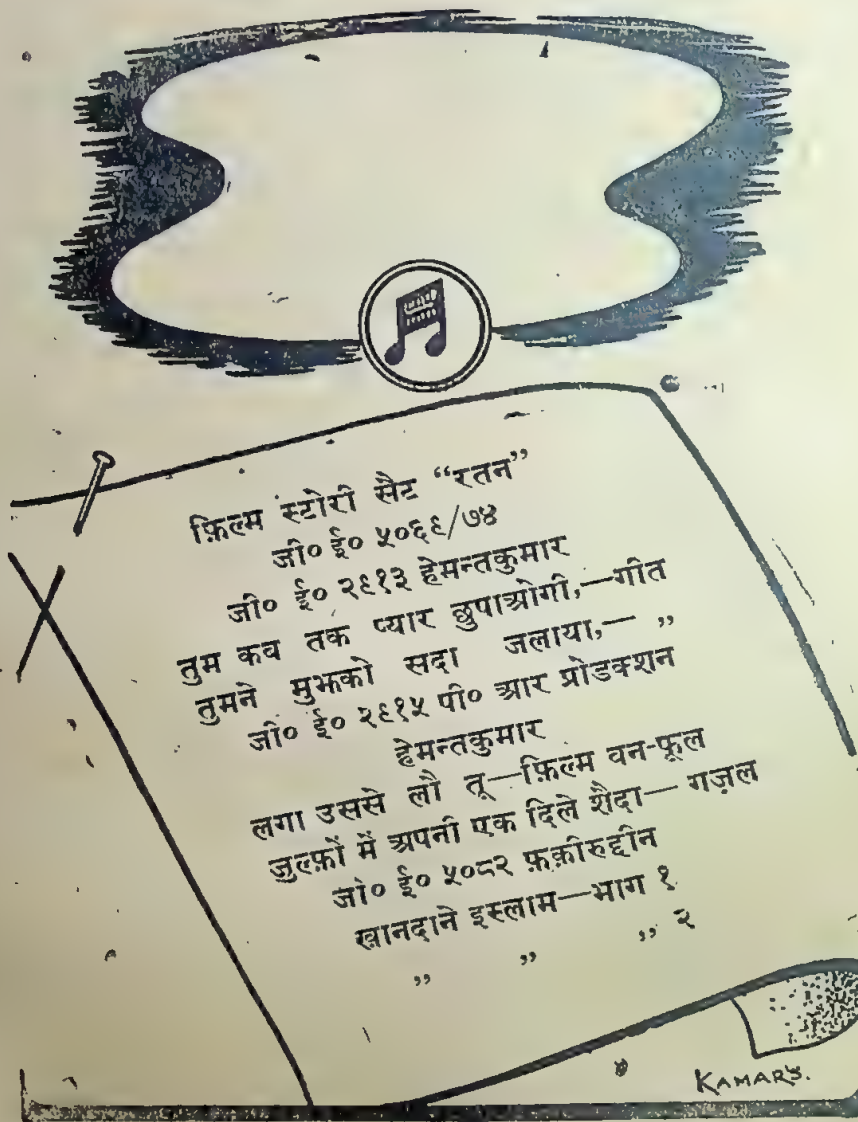 फ़िल्म स्टोरी सैट “रतन”
जी० ई० ५०६९/७४
जी० ई० २९१३ हेमन्तकुमार
तुम कब तक प्यार छुपाओगी,—गीत
तुमने मुझको सदा जलाया,— ,,
जी० ई० २९१५ पी० आर प्रोडक्शन
हेमन्तकुमार
लगा उससे लौ तू—फ़िल्म वन-फूल
जुल्फ़ों में अपनी एक दिले शैदा— गज़ल
जी० ई० ५०८२ फ़क़ीरुद्दीन
खानदाने इस्लाम—भाग १
,, ,, ,, २
KAMARS.